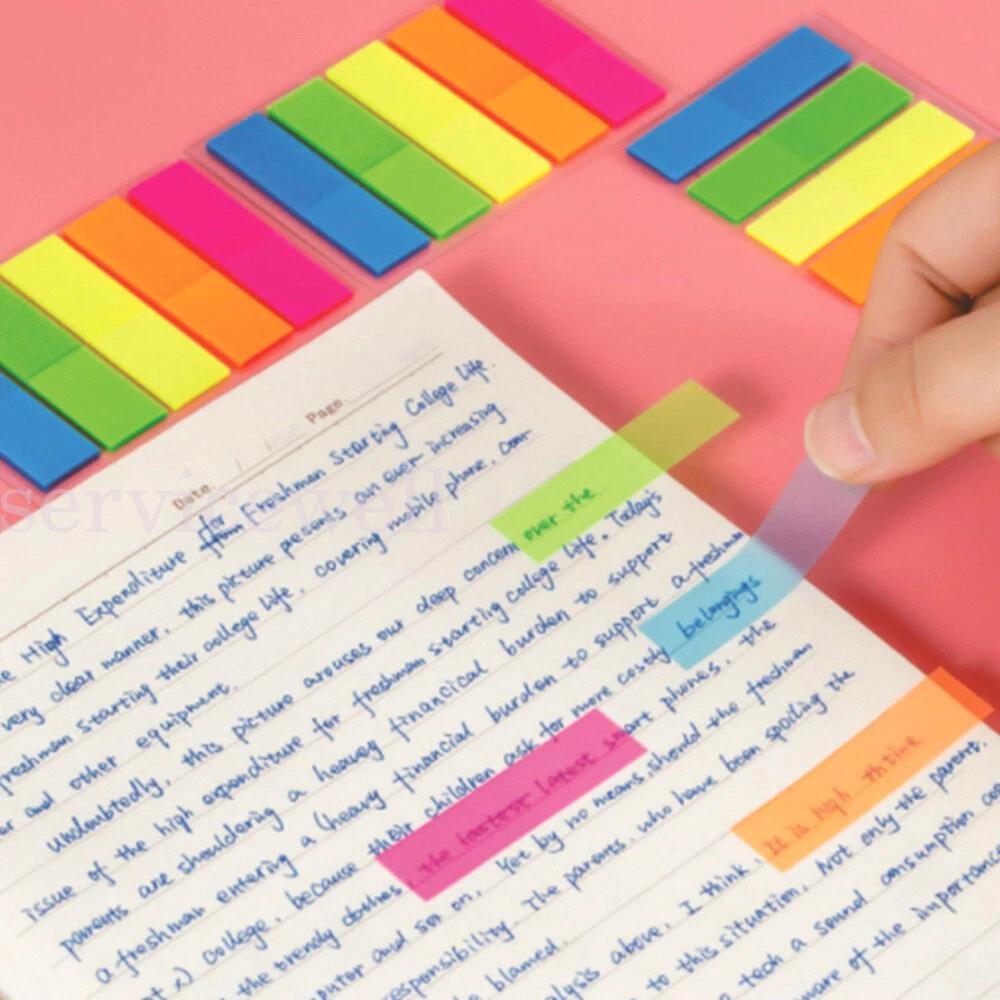 Page.
Date. / /
e High Expenditure for Freshman Starting College Life.
very clear manner, this picture presents an ever increasing
freshman starting their college life, covering mobile phone, com-
er and other equipment.
undoubtedly, this picture arouses our deep concern over the
issue of the high expenditure for freshman starting college life. Today's
parents are shouldering a heavy financial burden to support
a freshman entering a (heavy financial burden to support a freshman
college, because their children ask for more costly belongings
the trendy clothes, the lastest latest smart phones, the
puter and son on. Yet by no means should the freshman
responsibility. The parents, who have been spoiling the
e blamed.
alysis above, I think, It is high thtine
to this situation. Not only the parent.
tech a sound consumption co
ware of the importance
servicewell